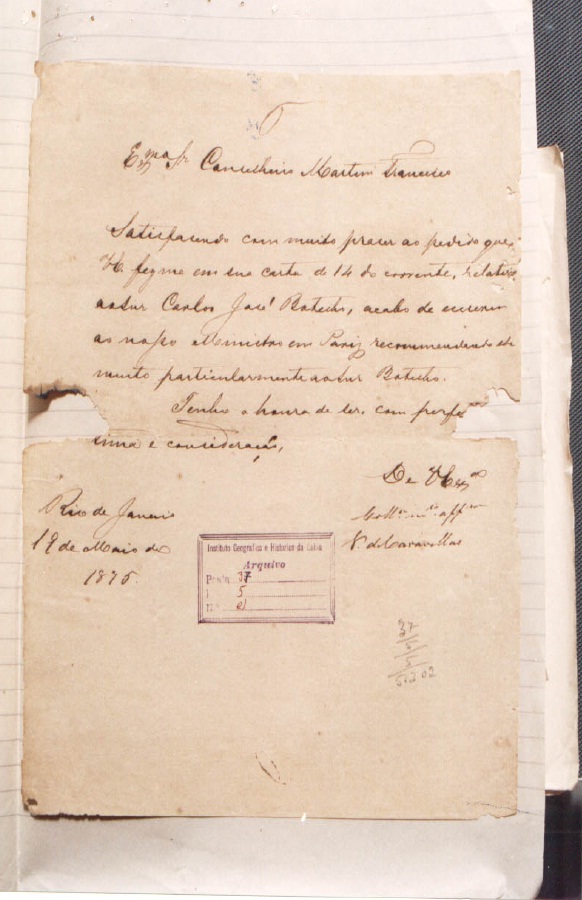 Exmo Sr Conselheiro Martim Francisco
Satisfasendo com muito praser ao pedido que
V. Ex. fez-me em sua carta de 14 do corrente, relativo
ao sur Carlos José Botelho, acabo de escrever
ao nosso Ministro em Pariz recommendando
muito particularmente ao sur Botelho.
Tenho a honra de ser, com perfei
tissima e consideração,
De V. Exa
Rio de Janeiro
19 de Maio de
1875.
V. de Caravellas
Instituto Geografico e Historico da Bahia
Arquivo
Pasta 37
5
37